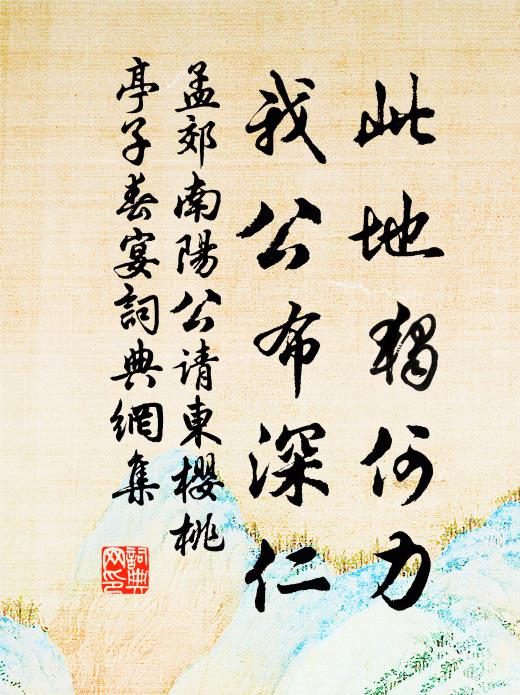 此地獨何力
我公布深仁
孟郊南陽公请東櫻桃
亭子春宴詞典網集
詞典
网印